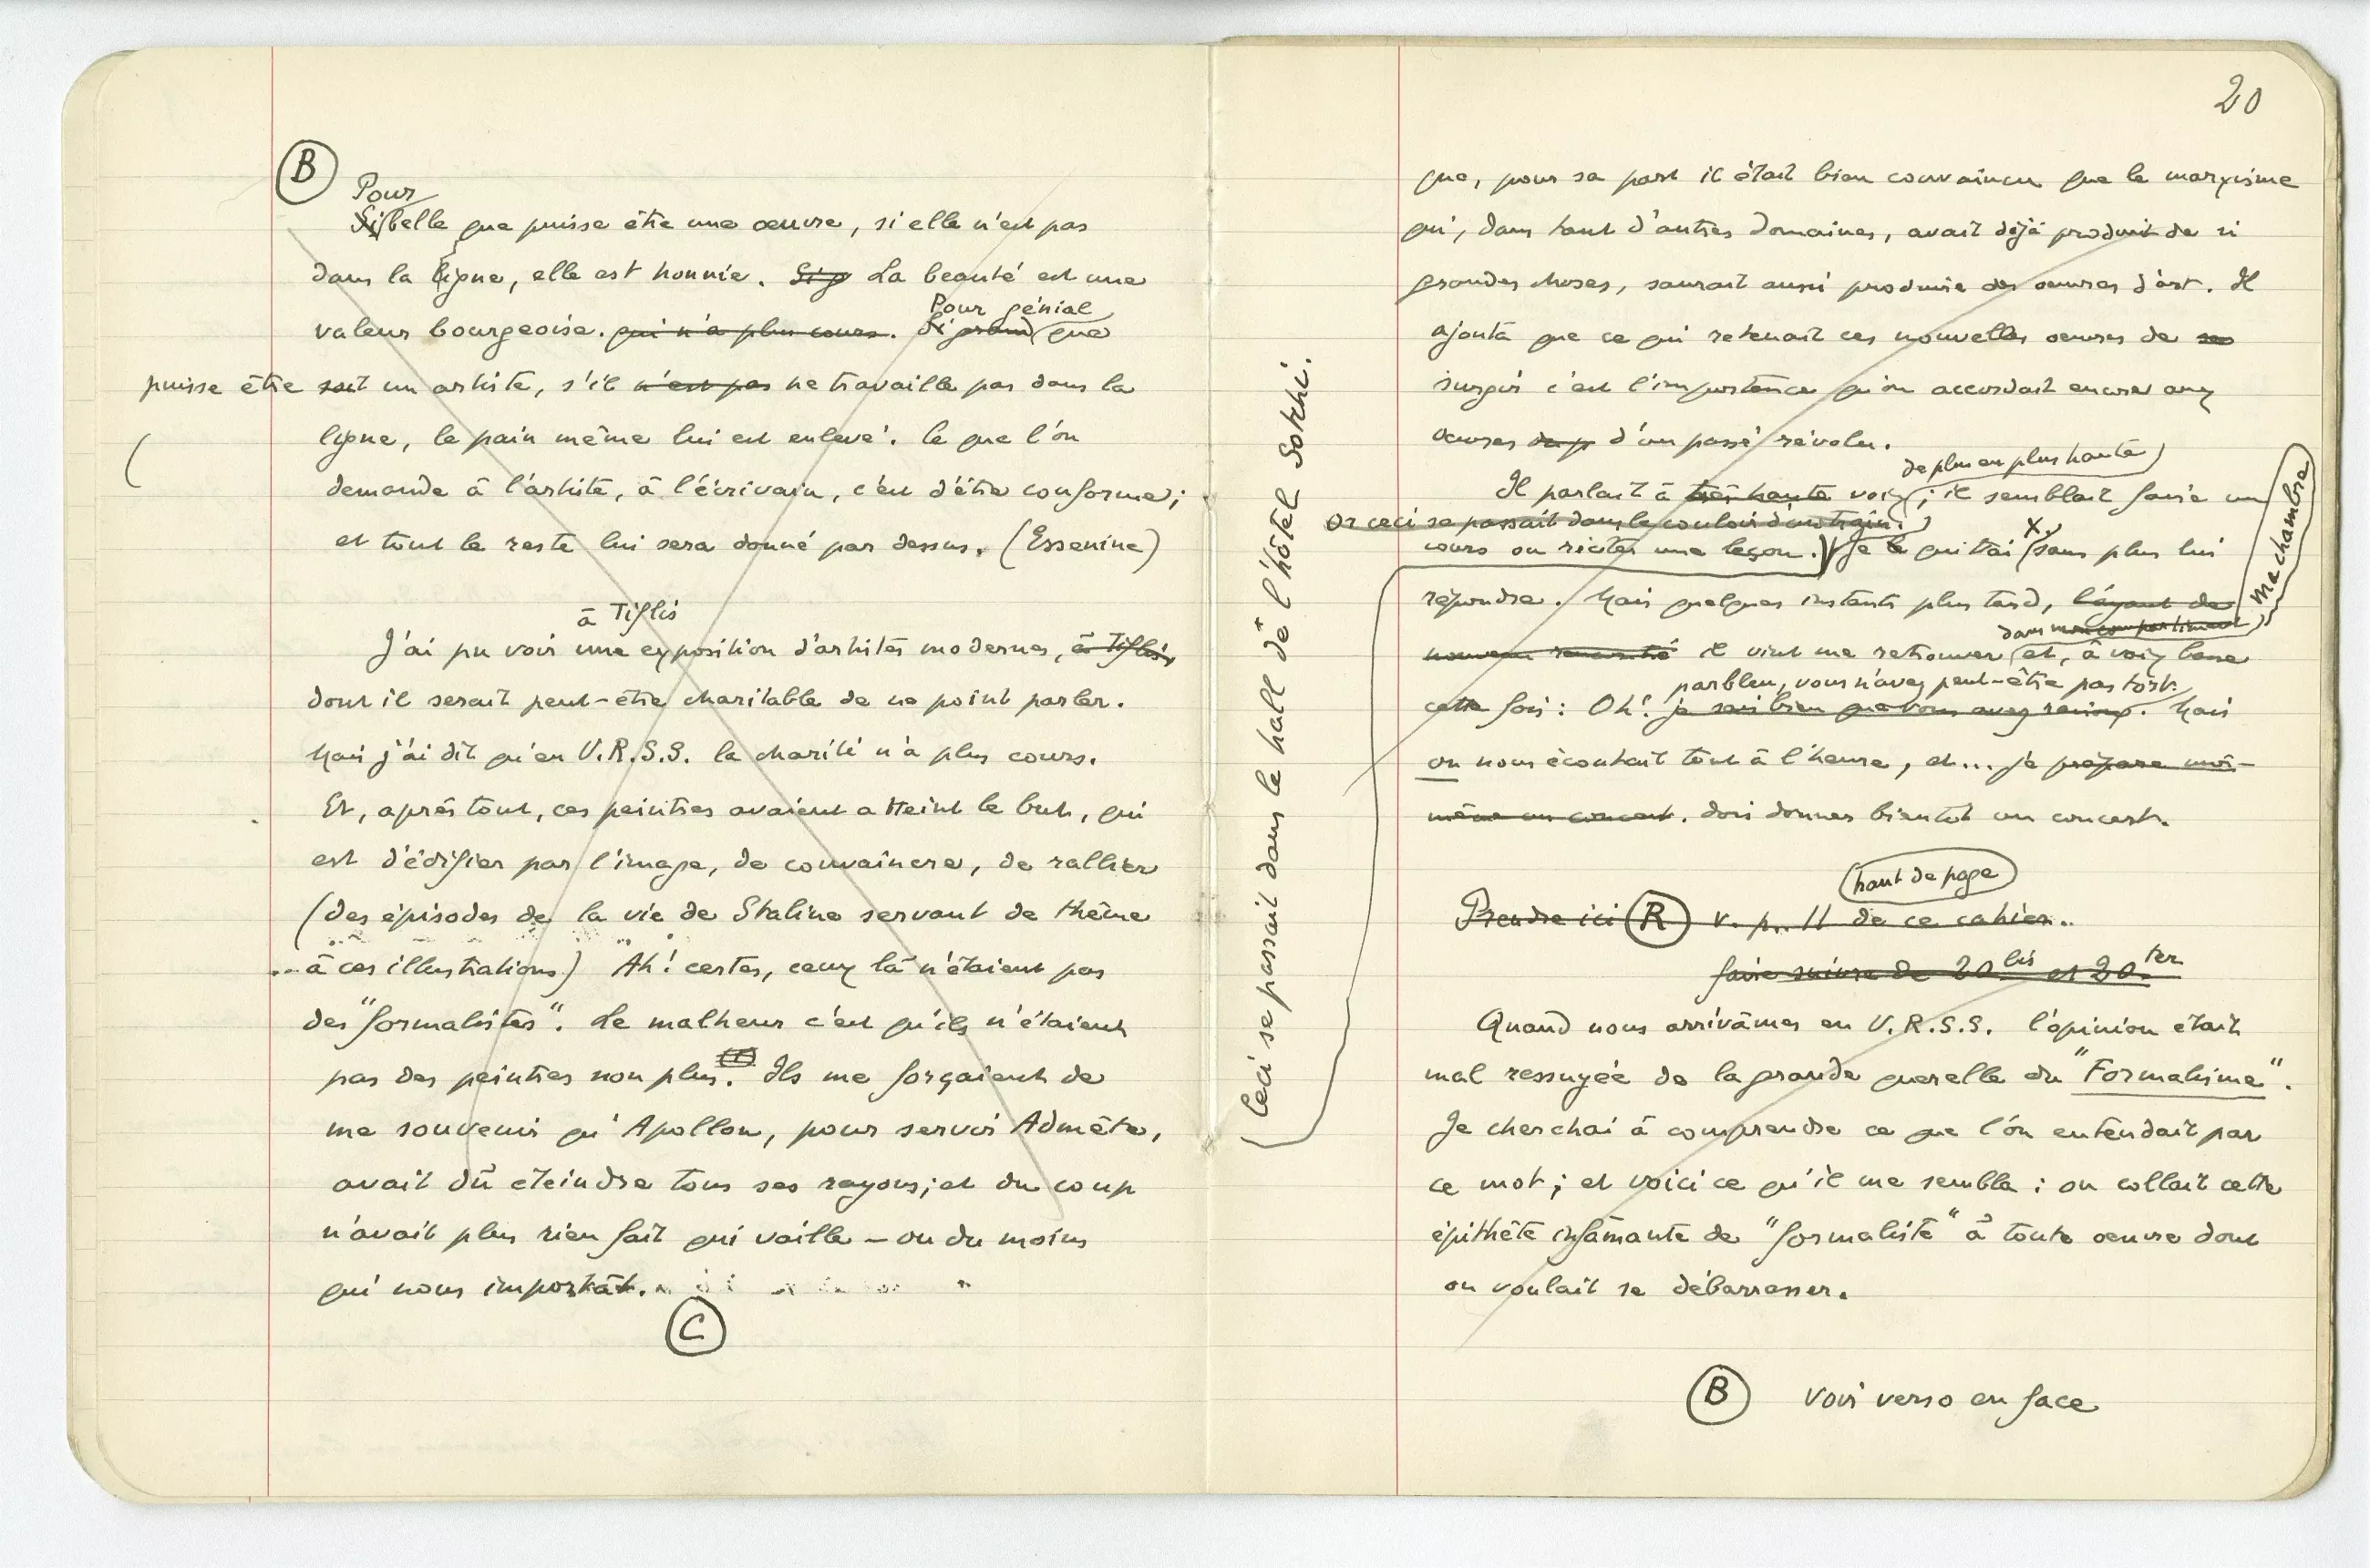 B
Pour
Si belle que puisse être une œuvre, si elle n'est pas
dans la ligne, elle est honnie. Si g La beauté est une
Pour génial
valeur bourgeoise. qui n'a plus cours. Si grand que
puisse être soit un artiste, s'il n'est pas ne travaille pas dans la
(
ligne, le pain même lui est enlevé. Ce que l'on
demande à l'artiste, à l'écrivain, c'est d'être conforme ;
et tout le reste lui sera donné par dessus. (Essenine)
à Tiflis
J'ai pu voir une exposition d'artistes modernes, à Tiflis,
dont il serait peut-être charitable de ne point parler.
Mais j'ai dit qu'en U.R.S.S. la charité n'a plus cours.
Et, après tout, ces peintres avaient atteint le but, qui
est d'édifier par l'image, de convaincre, de rallier
(des épisodes de la vie de Staline servant de thème
... à ces illustrations) Ah! certes, ceux là n'étaient pas
des "formalistes". Le malheur c'est qu'ils n'étaient
pas des peintres non plus. Ils me forçaient de
me souvenir qu'Apollon, pour servir Admète,
avait dû éteindre tous ses rayons ; et du coup
n'avait plus rien fait qui vaille – ou du moins
qui nous importât.
C
20
que, pour sa part il était bien convaincu que le marxisme
qui, dans tant d'autres domaines, avait déjà produit de si
grandes choses, saurait aussi produire des œuvres d'art. Il
ajouta que ce qui retenait ces nouvelles œuvres de
surgir c'est l'importance qu'on accordait encore aux
œuvres du p d'un passé révolu.
de plus en plus haute
Il parlait à très haute voix ; il semblait faire un
Or ceci se passait dans le couloir d'un train.
cours ou réciter une leçon. Je le quittai x sans plus lui
Ceci se passait dans le hall de l'hôtel Sotchi.
répondre. Mais quelques instants plus tard, l'ayant de
dans mon compartiment
ma chambre
nouveau rencontré il vint me retrouver et, à voix basse
parbleu, vous n'avez peut-être pas tort.
cette fois : Oh! je sais bien que vous avez raison. Mais
on nous écoutait tout à l'heure, et... je prépare moi-
même un concert. dois donner bientôt un concert.
haut de page
Prendre ici R v. p. 11 de ce cahier..
faire suivre de 20 bis et 20 ter
Quand nous arrivâmes en U.R.S.S. l'opinion était
mal ressuyée de la grande querelle du "Formalisme".
Je cherchai à comprendre ce que l'on entendait par
ce mot ; et voici ce qu'il me sembla : on collait cette
épithète infâmante de "formaliste" à toute œuvre dont
on voulait se débarrasser.
B voir verso en face